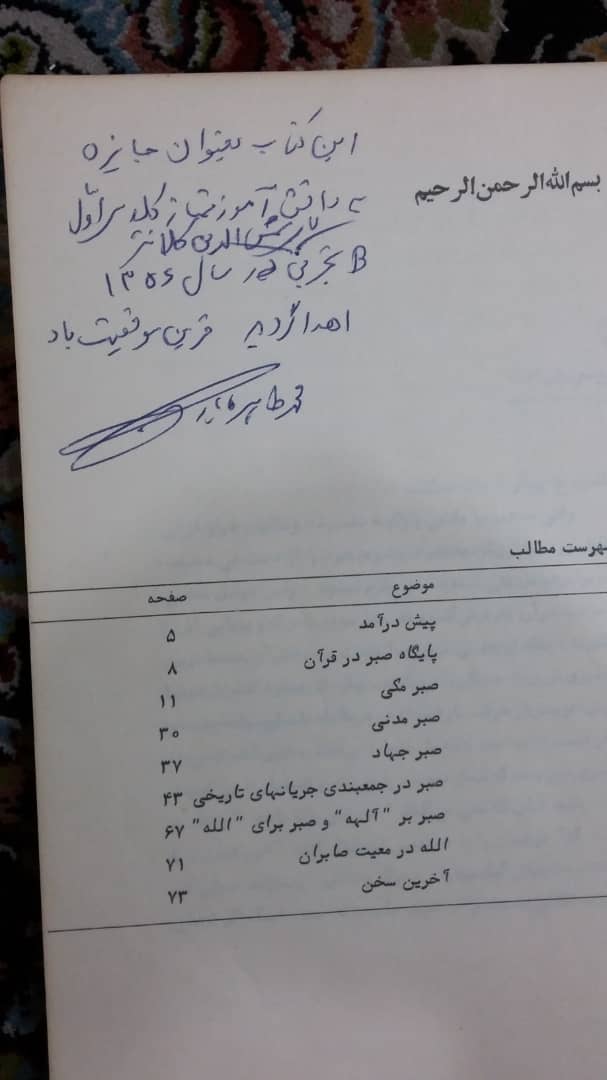 بسم‌الله‌الرحمن‌الرحیم
این کتاب بعنوان جایزه
به دانش آموز ممتاز کلاس اوّل
B تجربی در سال ۱۳۵۶
اهدا گردید قرین موفقیت باد
محمد طاهر
فهرست مطالب
موضوع صفحه
پیش درآمد ۵
پایگاه صبر در قرآن ۸
صبر مکّی ۱۱
صبر مدنی ۳۰
صبر جهاد ۳۷
صبر در جمعبندی جریانهای تاریخی ۴۳
صبر بر "آلهه" و صبر برای "الله" ۶۷
الله در معیت صابران ۷۱
آخرین سخن ۷۳